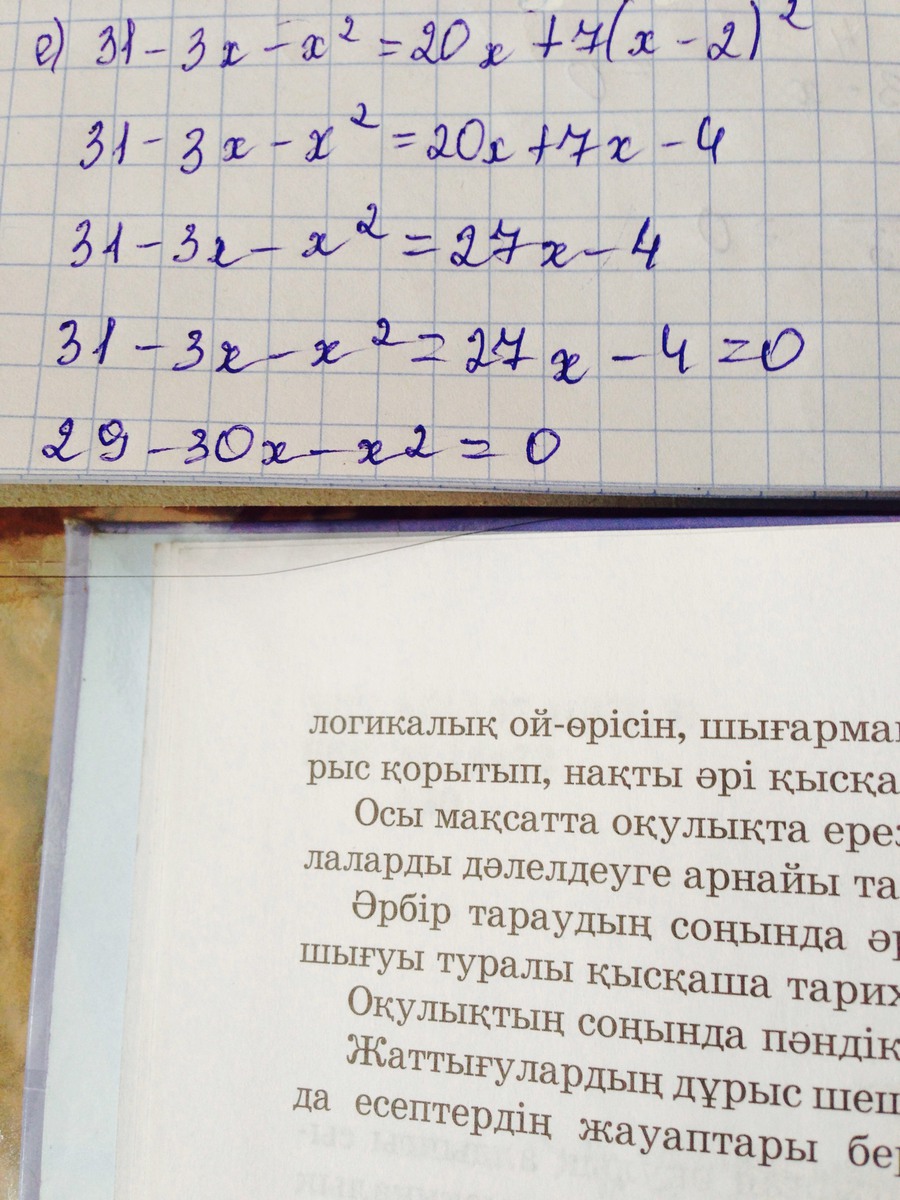 е) 31 - 3x - x² = 20x + 7(x - 2)²
31 - 3x - x² = 20x + 7x - 4
31 - 3x - x² = 27x - 4
31 - 3x - x² = 27x - 4 = 0
29 - 30x - x2 = 0
логикалық ой-өрісін,
рыс қорытып, нақты әрі қысқа
Осы мақсатта оқулықта
лаларды дәлелдеуге арнайы
Әрбір тараудың соңында
шығуы туралы қысқаша
Оқулықтың соңында
Жаттығулардың дұрыс
да есептердің жауаптары